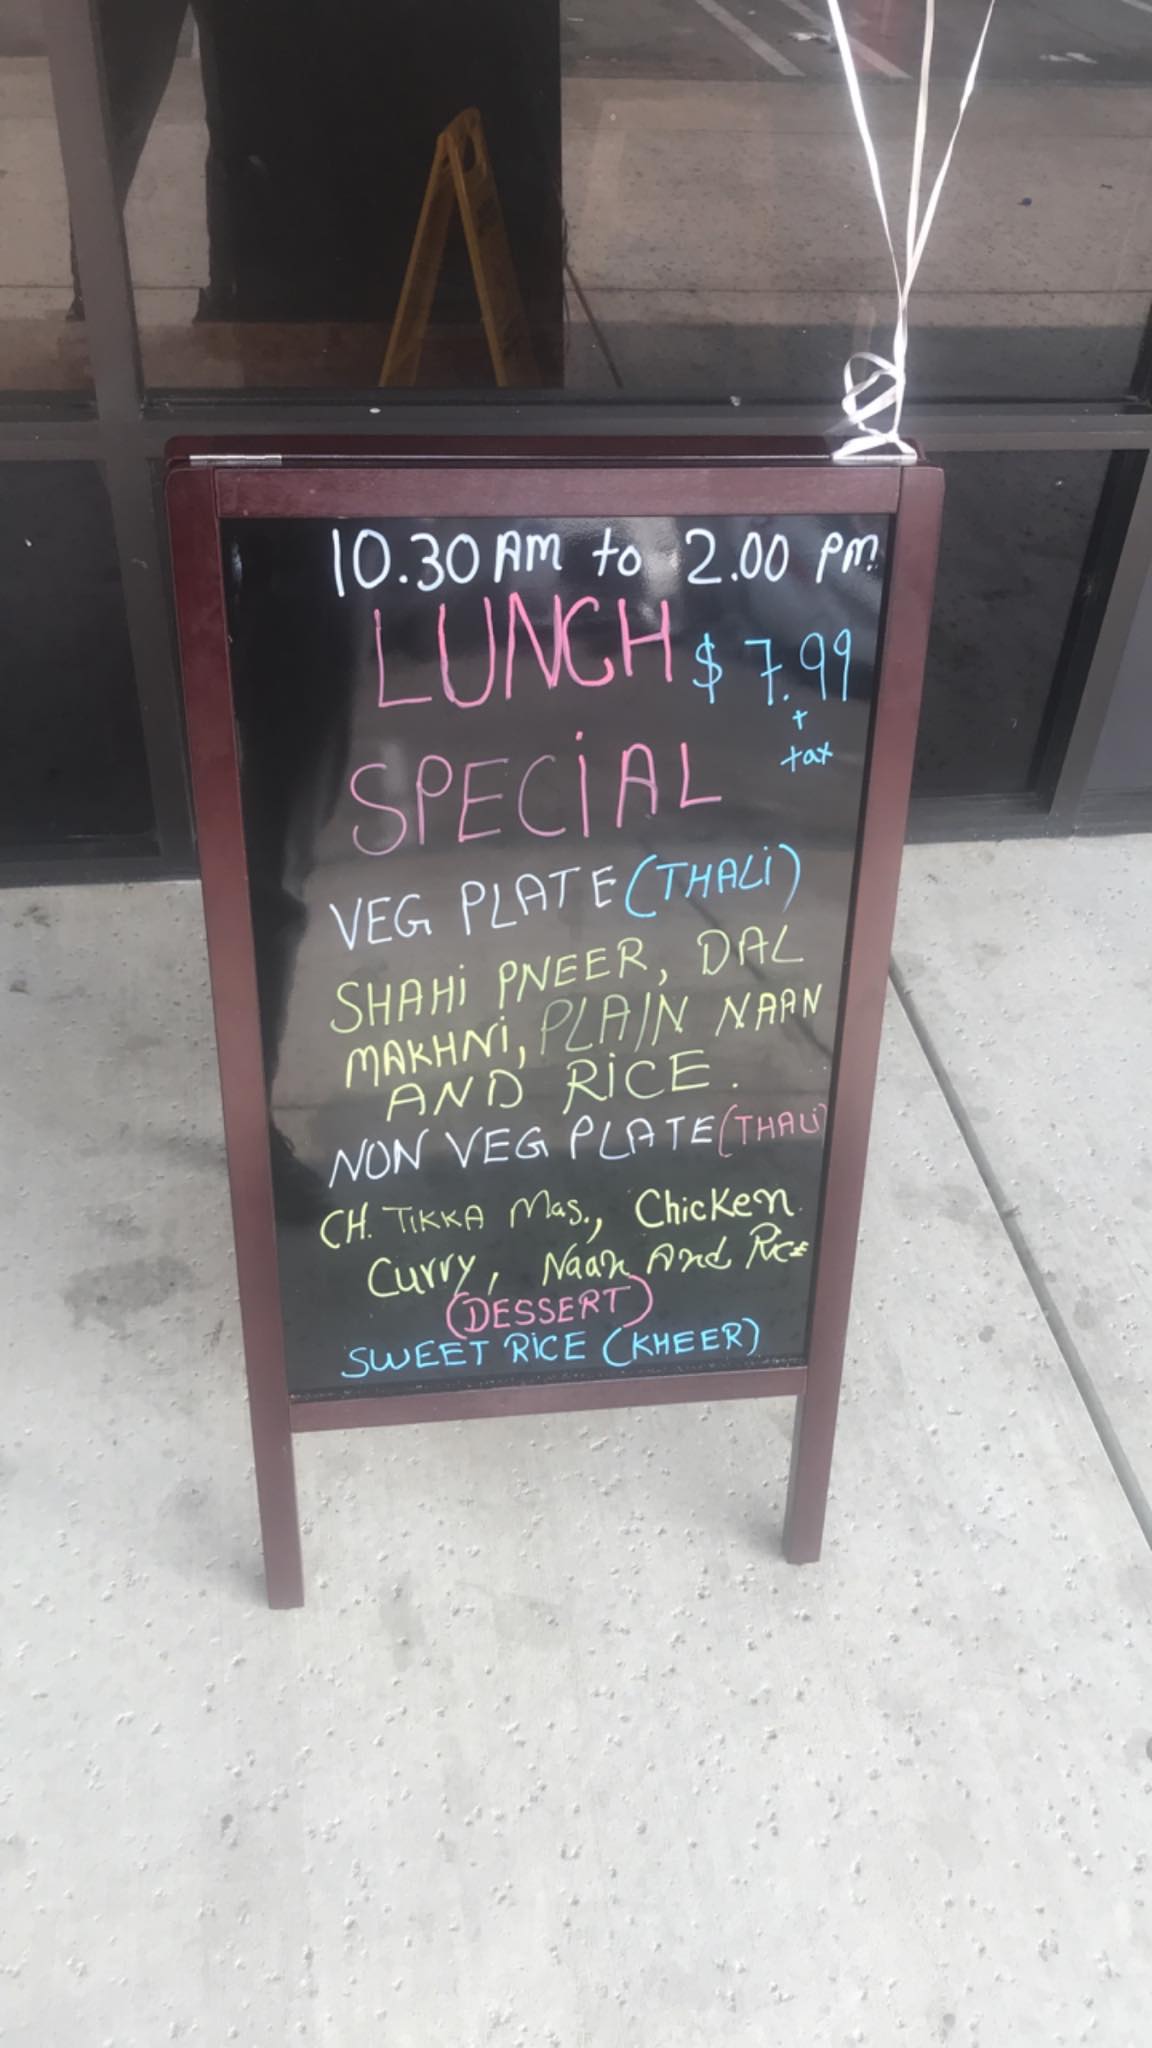 10.30 AM to 2.00 PM
LUNCH $7.99
+
tax
SPECiAL
VEG PLATE (THALi)
SHAHi PNEER, DAL
MAKHNi, PLAIN NAAN
AND RiCE.
NON VEG PLATE (THALi)
CH. TIKKA Mas., Chicken
Curry, Naan And Rice
(DESSERT)
SWEET RiCE (KHEER)